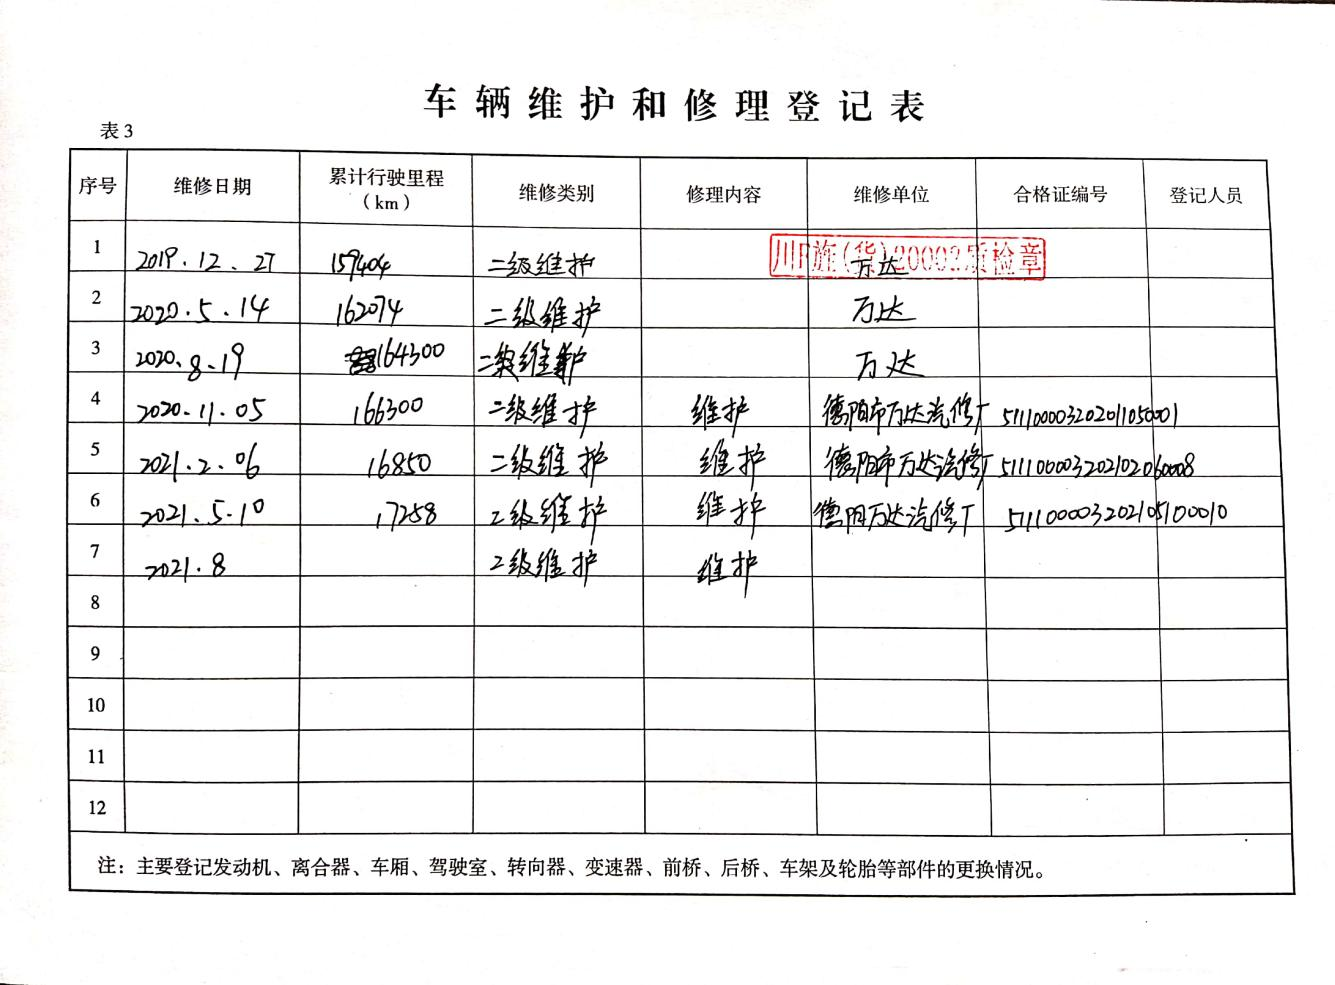 车辆维护和修理登记表
表3
序号 维修日期 累计行驶里程（km） 维修类别 修理内容 维修单位 合格证编号 登记人员
1 2019.12.27 159404 二级维护 万达
川F旌(华)20002质检章
2 2020.5.14 162074 二级维护 万达
3 2020.8.19 164300 二级维护 万达
4 2020.11.05 166300 二级维护 维护 德阳市万达汽修厂 511100003202011050001
5 2021.2.06 16850 二级维护 维护 德阳市万达汽修厂 511100003202102060008
6 2021.5.10 17258 二级维护 维护 德阳万达汽修厂 511100003202105100010
7 2021.8 二级维护 维护
8
9
10
11
12
注：主要登记发动机、离合器、车厢、驾驶室、转向器、变速器、前桥、后桥、车架及轮胎等部件的更换情况。